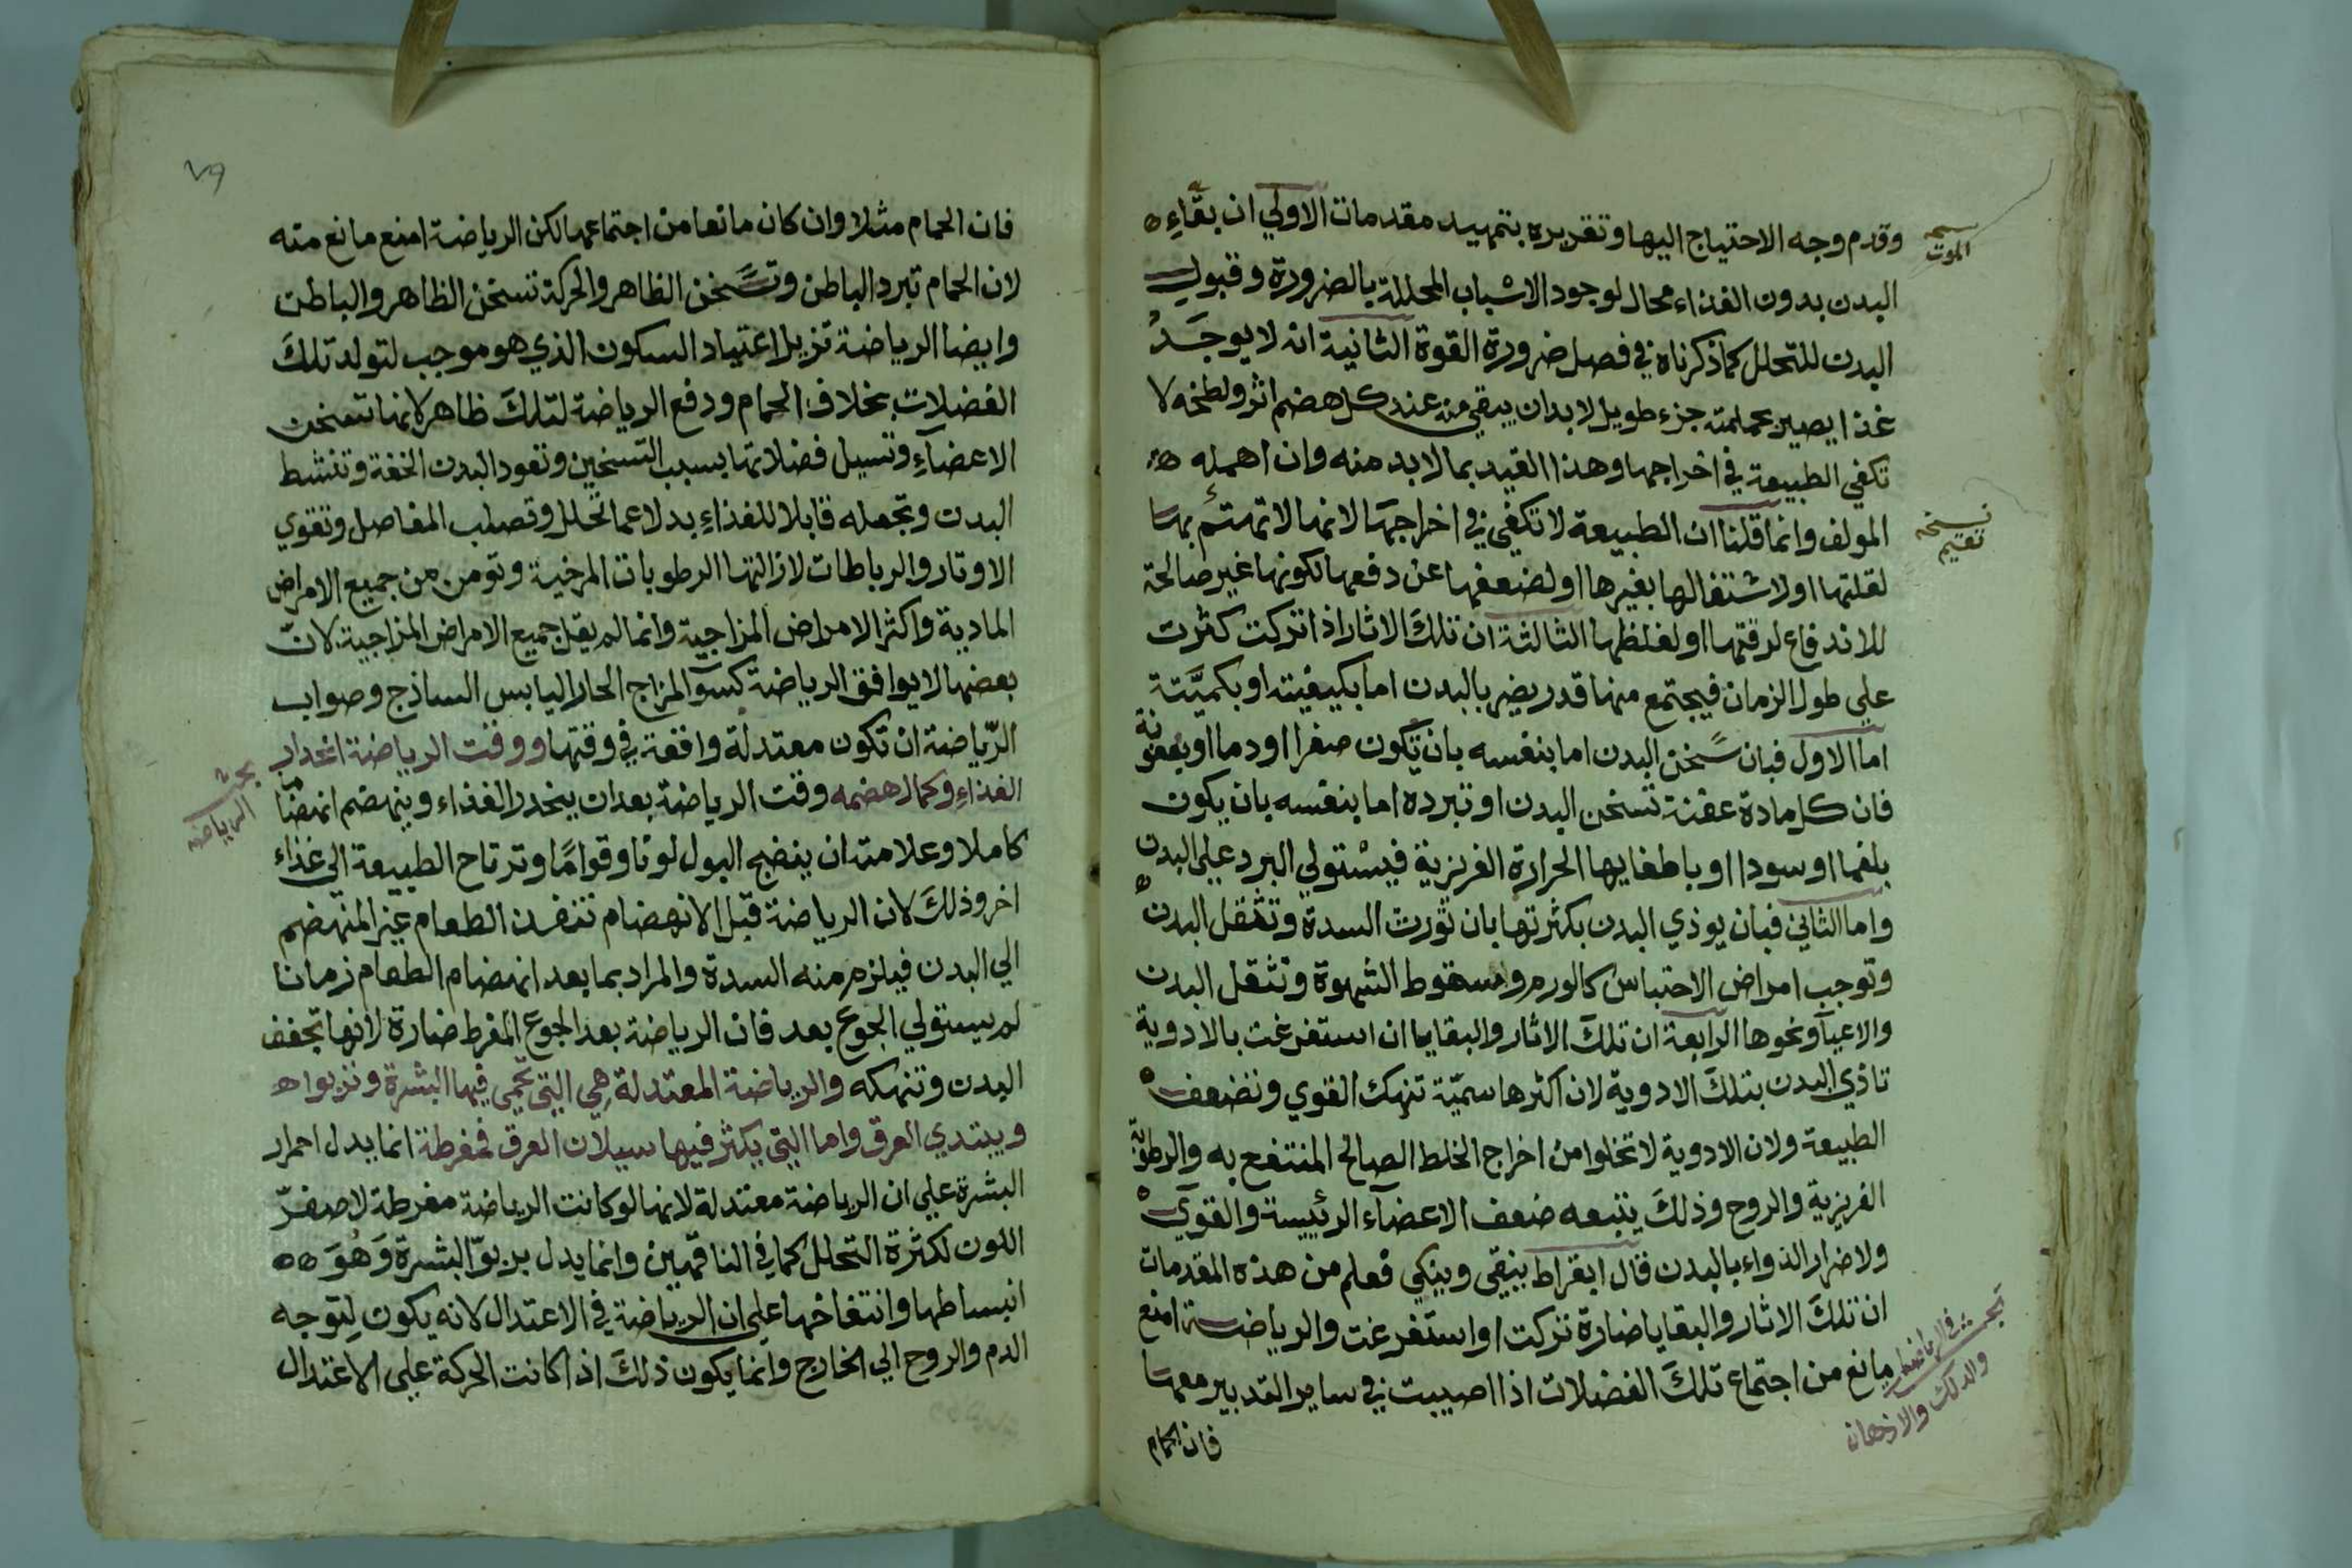 وقدم وجه الاحتياج اليها وتقريره بتمهيد مقدمات الاولي ان بقاء
البدن بدون الغذاء محال لوجود الاسباب المحللة بالضرورة وقبول
البدن للتحلل كما ذكرناه في فصل ضرورة القوة الثانية انه لا يوجد
غذا يصير بجملته جزء طويل لا بد ان يبقي منه عند كل هضم اثر ولطخه لا
تكفي الطبيعة في اخراجها وهذا القيد بما لا بد منه وان اهمله
المولف وانما قلنا ان الطبيعة لا تكفي في اخراجها لانها لا تهتئم بها
لقلتها او لاشتغالها بغيرها او لضعفها عن دفعها لكونها غير صالحة
للاندفاع لرقتها او لغلظها الثالثة ان تلك الاثار اذا تركت كثرت
علي طول الزمان فيجتمع منها قدر يضر بالبدن اما بكيفيته او بكميته
اما الاول فبان سخن البدن اما بنفسه بان تكون صفرا او دما او بعفونة
فان كل مادة عفنة تسخن البدن او تبرده اما بنفسه بان يكون
بلغما او سودا او باطفايها الحرارة الغريزية فيستولي البرد علي البدن
واما الثاني فبان يوذي البدن بكثرتها بان تورث السدة وتثقل البدن
وتوجب امراض الاحتباس كالورم وسقوط الشهوة وتثقل البدن
والاعيآ ونحوها الرابعة ان تلك الاثار والبقايا ان استفرغت بالادوية
تاذي البدن بتلك الادوية لان اكثرها سمية تنهك القوي وتضعف
الطبيعة ولان الادوية لا تخلوا من اخراج الخلط الصالح المنتفع به والرطوبة
الغريزية والروح وذلك يتبعه ضعف الاعضآء الرئيسة والقوي
ولاضرار الدواء بالبدن قال ابقراط ينقي وينكي فعلم من هذه المقدمات
ان تلك الاثار والبقايا ضارة تركت او استفرغت والرياضة امنع
مانع من اجتماع تلك الفضلات اذا اصيبت في ساير التدبير معها
فان الحمام
الموت
نسخه
تقيم
بحث في الرياضة
والدلك والادهان
٧٩
فان الحمام مثلا وان كان مانعا من اجتماعها لكن الرياضة امنع مانع منه
لان الحمام تبرد الباطن وتسخن الظاهر والحركة تسخن الظاهر والباطن
وايضا الرياضة تزيل اعتياد السكون الذي هو موجب لتولد تلك
الفضلات بخلاف الحمام ودفع الرياضة لتلك ظاهر لانها تسخن
الاعضآء وتسيل فضلاتها بسبب التسخين وتعود البدن الخفة وتنشط
البدن وتجعله قابلا للغذاء بدلا عما تحلل وتصلب المفاصل وتقوي
الاوتار والرباطات لازالتها الرطوبات المرخية وتومن من جميع الامراض
المادية واكثر الامراض المزاجية وانما لم يقل جميع الامراض المزاجية لان
بعضها لا يوافق الرياضة كسوٓ المزاج الحار اليابس الساذج وصواب
الرياضة ان تكون معتدلة واقعة في وقتها ووقت الرياضة انحدار
الغذاء وكمال هضمه وقت الرياضة بعد ان ينحدر الغذاء وينهضم انهضاما
كاملا وعلامته ان ينضج البول لونا وقواما وترتاح الطبيعة الي غذاء
اخر وذلك لان الرياضة قبل الانهضام تنفذ الطعام غير المنهضم
الي البدن فيلزم منه السدة والمراد بما بعد انهضام الطعام زمانا
لم يستولي الجوع بعد فان الرياضة بعد الجوع المفرط ضارة لانها تجفف
البدن وتنهكه والرياضة المعتدلة هي التي تحمي فيها البشرة وتربوا
ويبتدي العرق واما التي يكثر فيها سيلان العرق فمفرطة انما يدل احمرار
البشرة علي ان الرياضة معتدلة لانها لو كانت الرياضة مفرطة لاصفر
اللون لكثرة التحلل كما في الناقهين وانما يدل بربو البشرة وهو
انبساطها وانتفاخها علي ان الرياضة في الاعتدال لانه يكون لتوجه
الدم والروح الي الخارج وانما يكون ذلك اذا كانت الحركة علي الاعتدال
بحث
الرياضه